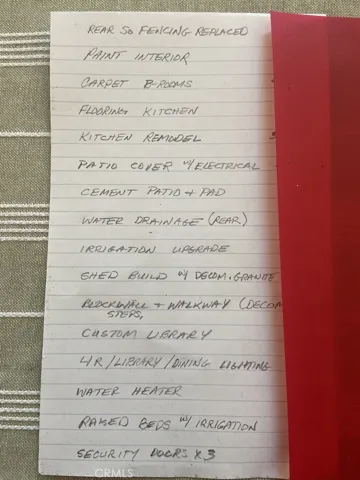 REAR SO FENCING REPLACED
PAINT INTERIOR
CARPET B-ROOMS
FLOORING KITCHEN
KITCHEN REMODEL
PATIO COVER W/ELECTRICAL
CEMENT PATIO + PAD
WATER DRAINAGE (REAR)
IRRIGATION UPGRADE
SHED BUILD W/ DECOM. GRANITE
BLOCKWALL + WALKWAY (DECOM
STEPS,
CUSTOM LIBRARY
LIR/LIBRARY/DINING LIGHTING
WATER HEATER
RAISED BEDS W/ IRRIGATION
SECURITY DOORS X3
CRMLS